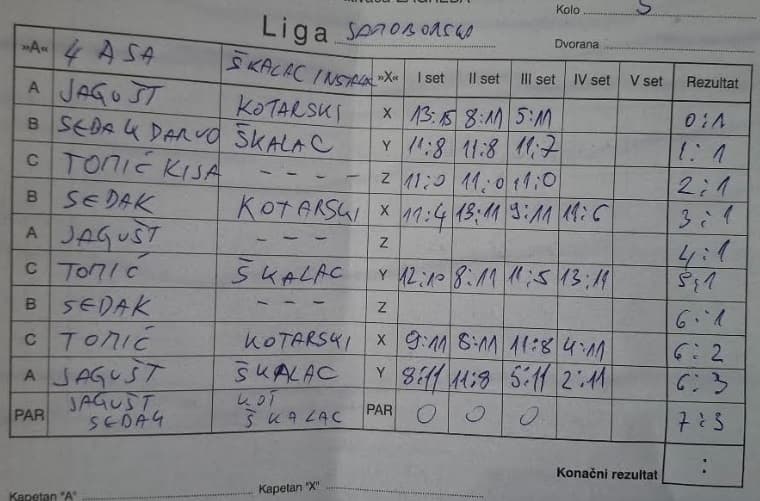 ZAGREBA
Kolo 5
Liga SAMOBORSKA
Dvorana
»A« 4 ASA ŠKALAC INSTAL »X« I set II set III set IV set V set Rezultat
A JAGUŠT KOTARSKI X 13:15 8:11 5:11 0:1
B SEDAK DARVO ŠKALAC Y 11:8 11:8 11:7 1:1
C TOMIĆ KISA - - - - Z 11:0 11:0 11:0 2:1
B SEDAK KOTARSKI X 11:4 13:11 9:11 11:6 3:1
A JAGUŠT - - - Z 4:1
C TOMIĆ ŠKALAC Y 12:10 8:11 11:5 13:11 5:1
B SEDAK - - - Z 6:1
C TOMIĆ KOTARSKI X 9:11 8:11 11:8 4:11 6:2
A JAGUŠT ŠKALAC Y 8:11 11:8 5:11 2:11 6:3
PAR JAGUŠT SEDAK KOT ŠKALAC PAR 0 0 0 7:3
Konačni rezultat :
Kapetan "A" Kapetan "X"